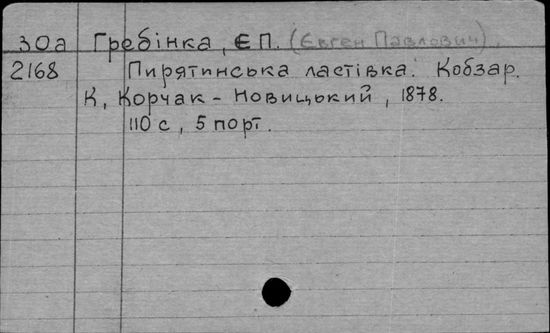 30а Гребінка, Є П. (Євген Павлович).
2168 Пирятинська ластівка. Кобзар.
К, Корчак - Новицький, 1878.
110 с, 5 порт.